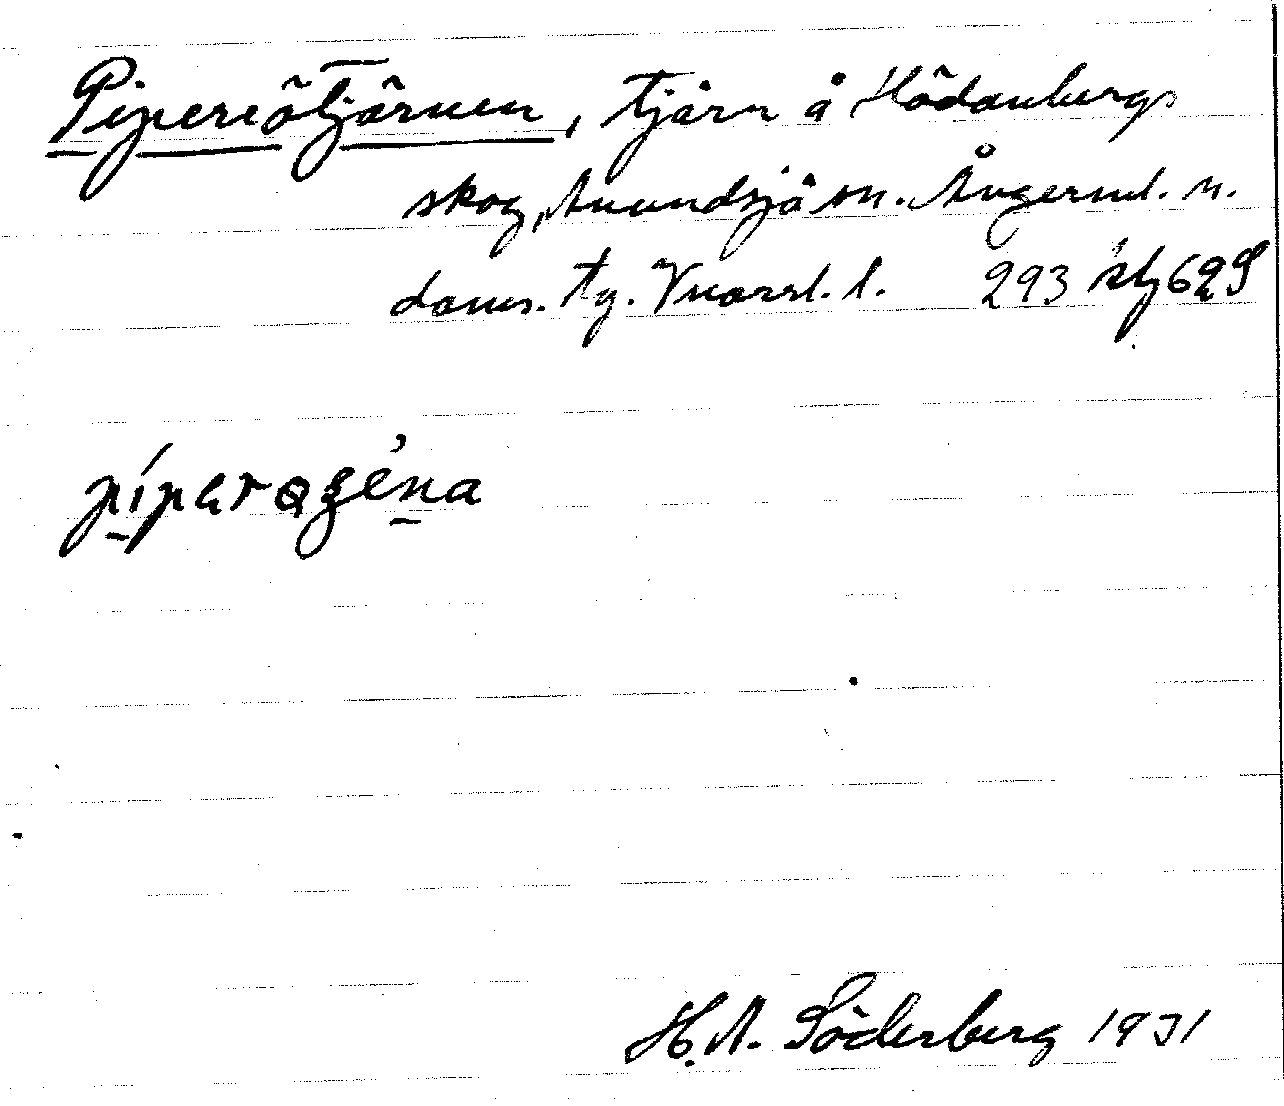 Pipereötjärnen, tjärn å Hädanbergs
skog, Anundsjö sn. Ångerml. n.
doms. tg. Vnorrl. l. 293
H. A. Söderberg 1931